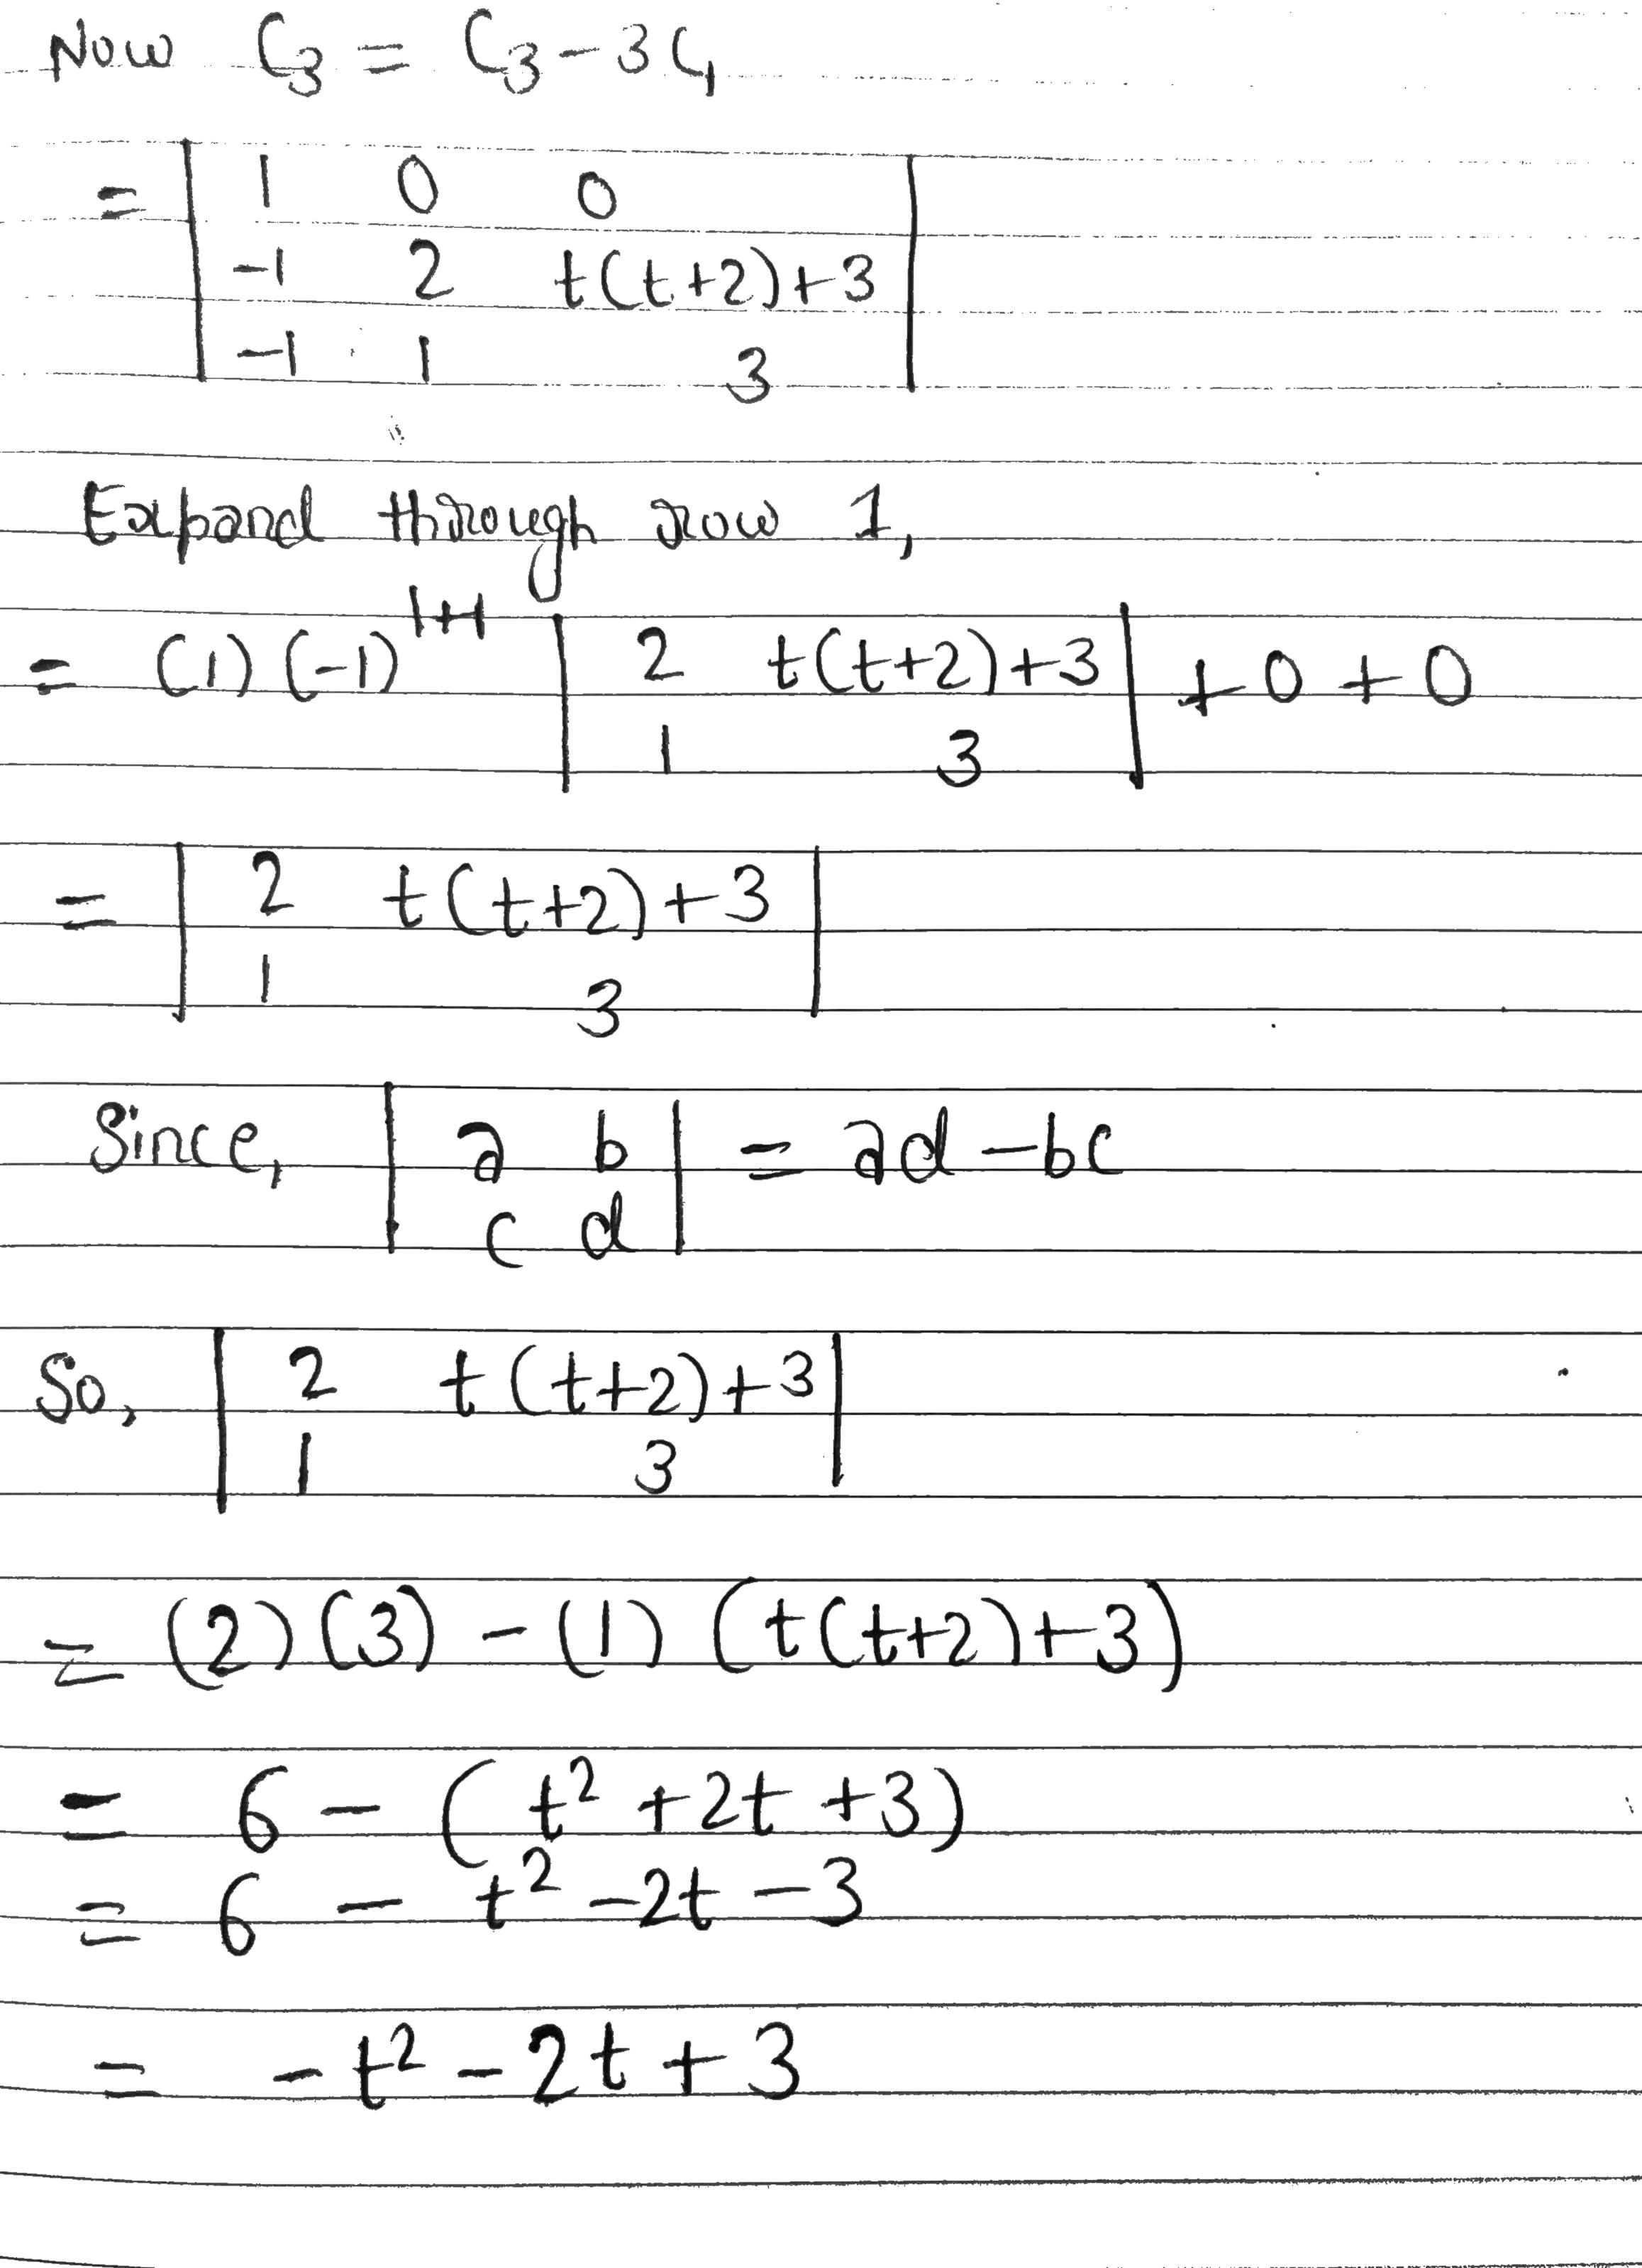 Now C₃ = C₃ - 3C₁
= | 1 0 0 |
| -1 2 t(t+2)+3 |
| -1 1 3 |
Expand through row 1,
= (1) (-1)¹⁺¹ | 2 t(t+2)+3 | + 0 + 0
| 1 3 |
= | 2 t(t+2)+3 |
| 1 3 |
Since, | a b | = ad - bc
| c d |
So, | 2 t(t+2)+3 |
| 1 3 |
= (2) (3) - (1) (t(t+2)+3)
= 6 - ( t² + 2t + 3)
= 6 - t² - 2t - 3
= - t² - 2t + 3